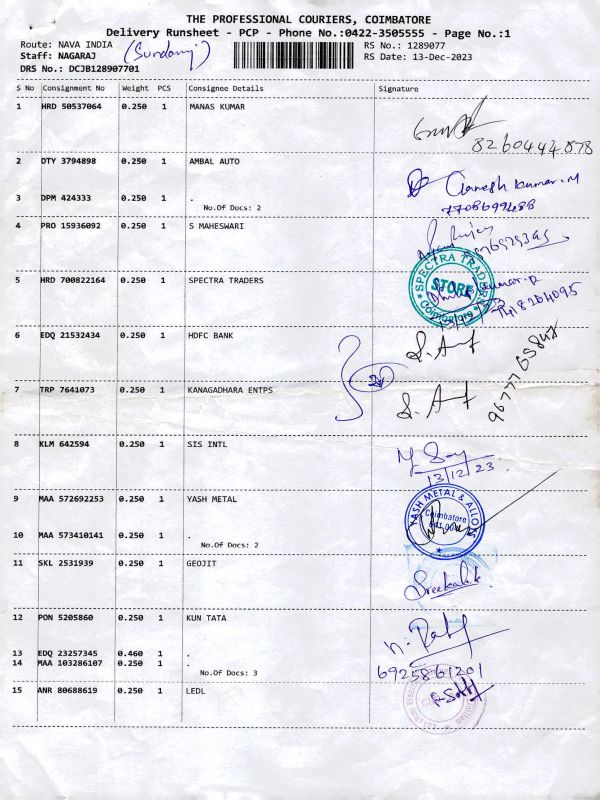 THE PROFESSIONAL COURIERS, COIMBATORE
Delivery Runsheet - PCP - Phone No.:0422-3505555 - Page No.:1
Route: NAVA INDIA
RS No.: 1289077
Staff: NAGARAJ
RS Date: 13-Dec-2023
DRS No.: DCJB128907701
S No Consignment No Weight PCS Consignee Details Signature
1 HRD 50537064 0.250 1 MANAS KUMAR
8260444878
2 OTY 3794898 0.250 1 AMBAL AUTO
Ganesh kumar.M
3 DPM 424333 0.250 1 .
No.Of Docs: 2
7708699488
4 PRO 15936092 0.250 1 S MAHESWARI
5 HRD 700822164 0.250 1 SPECTRA TRADERS
SPECTRA TRADERS
STORE
Coimbatore
6 EDQ 21532434 0.250 1 HDFC BANK
7 TRP 7641073 0.250 1 KANAGADHARA ENTPS
8 KLM 642594 0.250 1 SIS INTL
13/12/23.
9 MAA 572692253 0.250 1 YASH METAL
YASH METAL & ALLOYS
Coimbatore
10 MAA 573410141 0.250 1 .
No.Of Docs: 2
11 SKL 2531939 0.250 1 GEOJIT
12 PON 5205860 0.250 1 KUN TATA
13 EDQ 23257345 0.460 1 .
14 MAA 103286107 0.250 1 .
No.Of Docs: 3
6925861201
15 ANR 80688619 0.250 1 LEDL